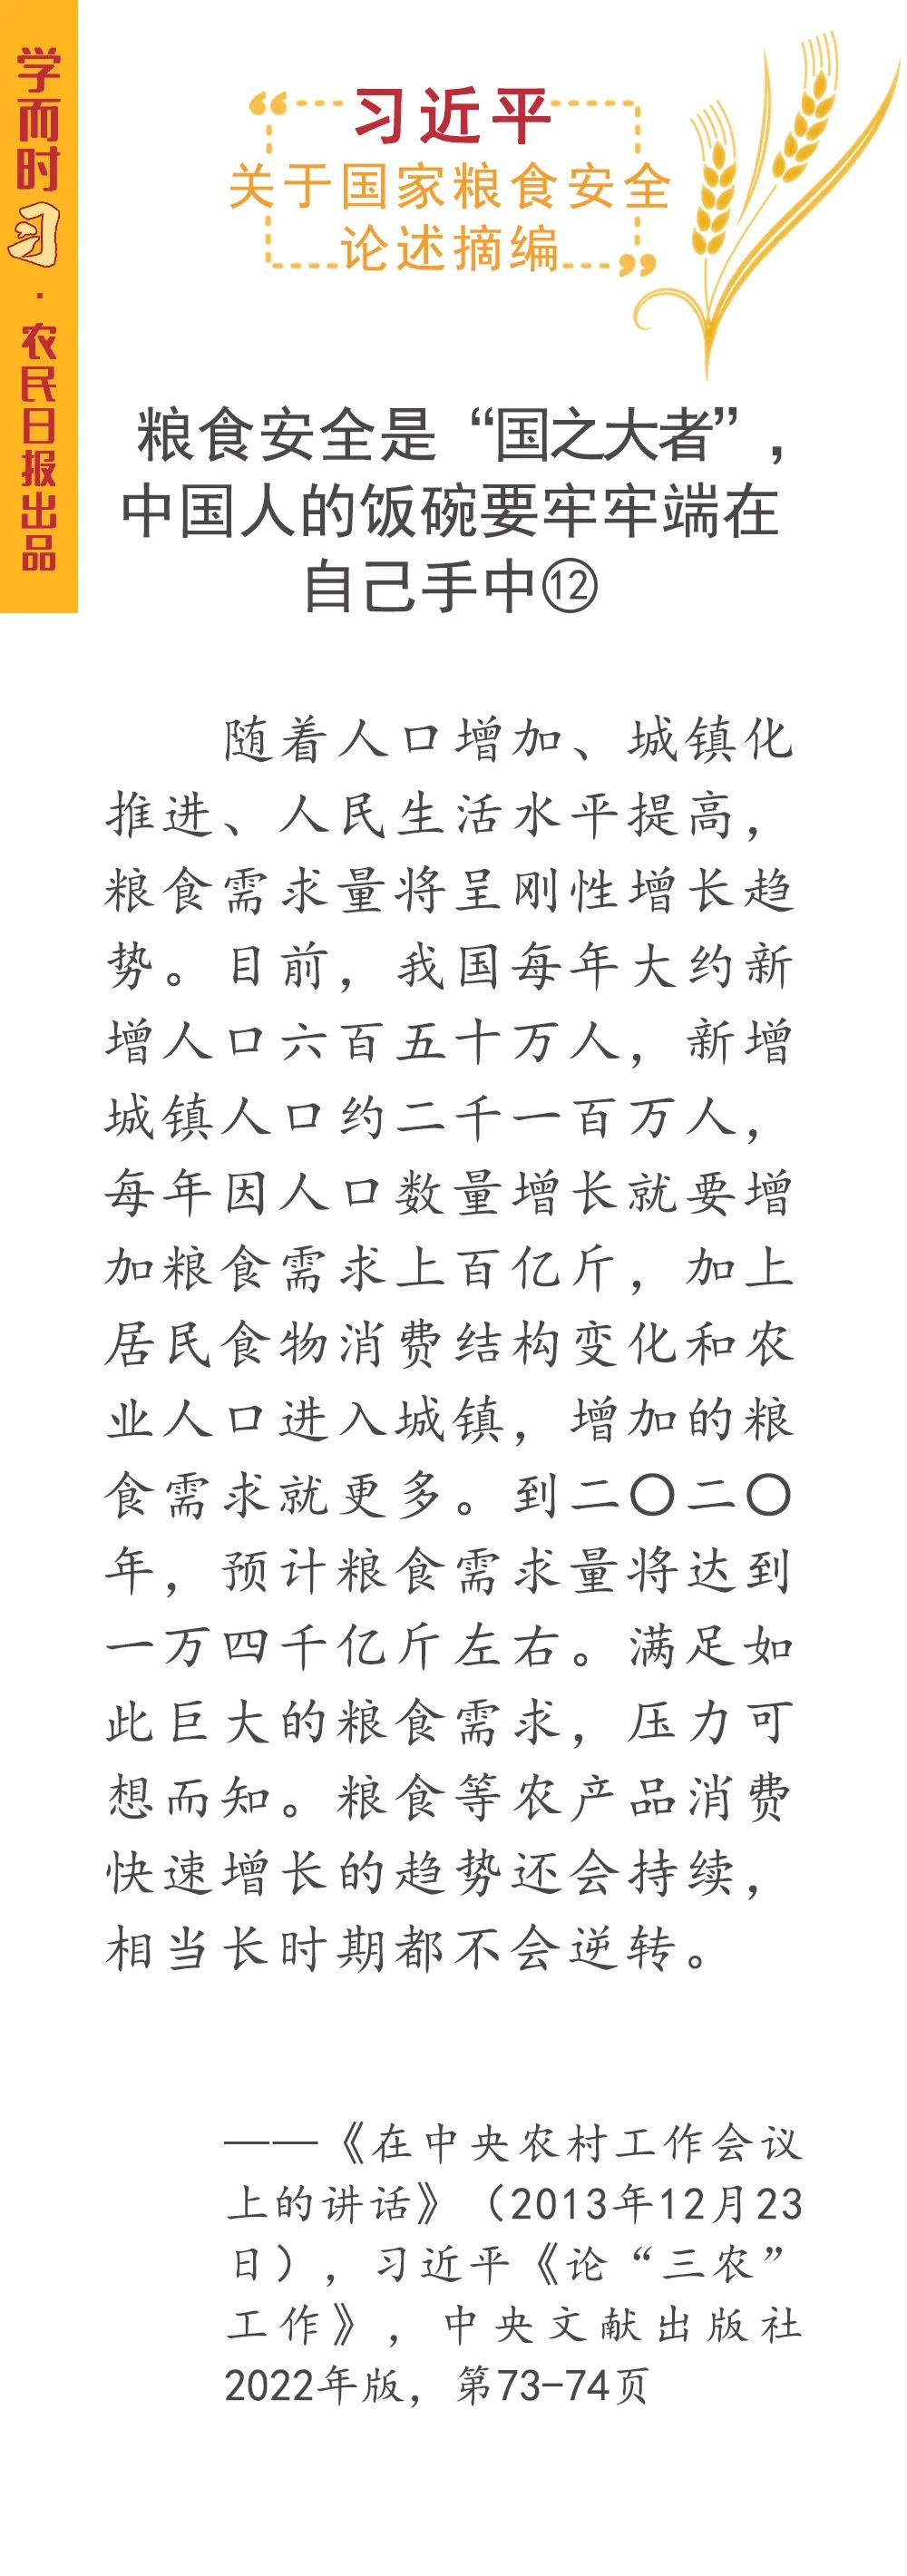 学而时习·农民日报出品
“习近平
关于国家粮食安全
论述摘编”
粮食安全是“国之大者”，
中国人的饭碗要牢牢端在
自己手中⑫
随着人口增加、城镇化
推进、人民生活水平提高，
粮食需求量将呈刚性增长趋
势。目前，我国每年大约新
增人口六百五十万人，新增
城镇人口约二千一百万人，
每年因人口数量增长就要增
加粮食需求上百亿斤，加上
居民食物消费结构变化和农
业人口进入城镇，增加的粮
食需求就更多。到二〇二〇
年，预计粮食需求量将达到
一万四千亿斤左右。满足如
此巨大的粮食需求，压力可
想而知。粮食等农产品消费
快速增长的趋势还会持续，
相当长时期都不会逆转。
——《在中央农村工作会议
上的讲话》（2013年12月23
日），习近平《论“三农”
工作》，中央文献出版社
2022年版，第73-74页